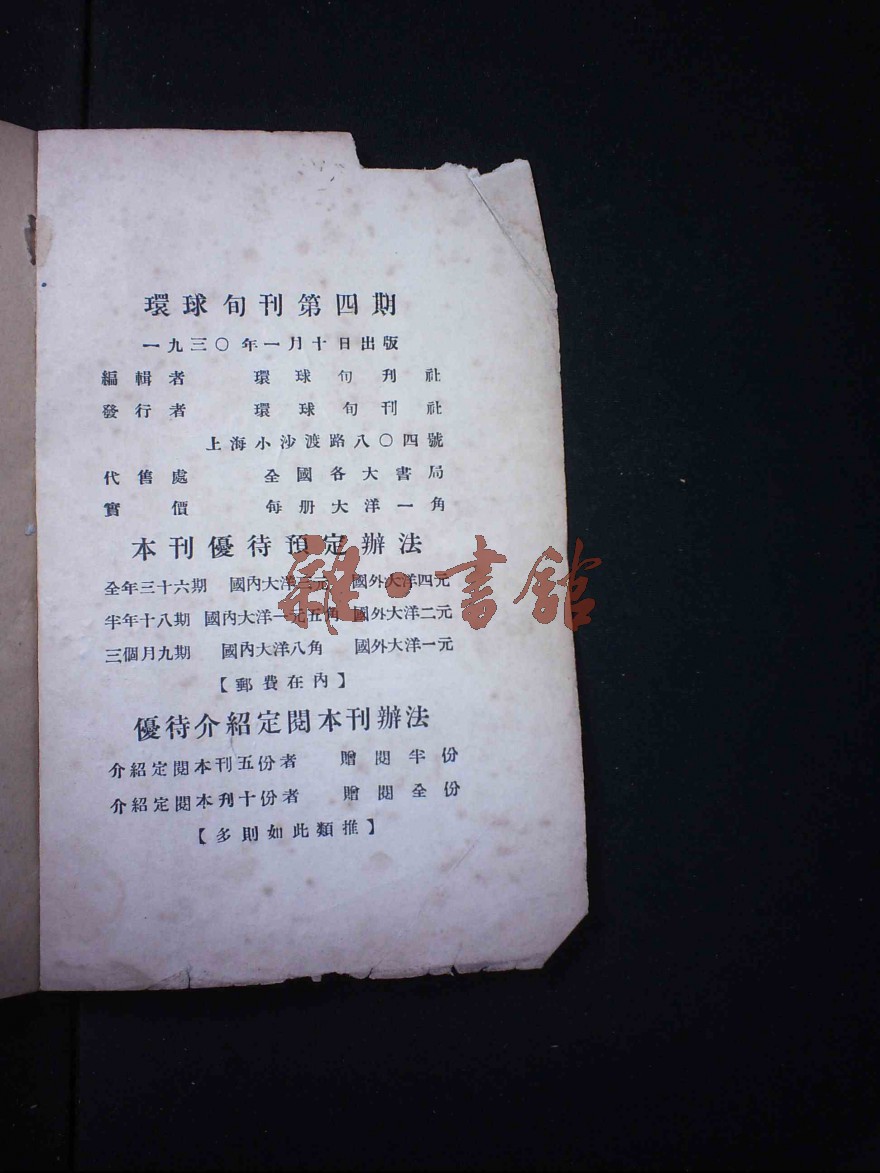 環球旬刊第四期
一九三〇年一月十日出版
編輯者 環球旬刋社
發行者 環球旬刊社
上海小沙渡路八〇四號
代售處 全國各大書局
實價 每册大洋一角
本刊優待預定辦法
全年三十六期 國內大洋三元 國外大洋四元
半年十八期 國內大洋一元五角 國外大洋二元
三個月九期 國內大洋八角 國外大洋一元
【郵費在內】
優待介紹定閱本刊辦法
介紹定閱本刊五份者 贈閱半份
介紹定閱本刋十份者 贈閱全份
【多則如此類推】
雜·書館